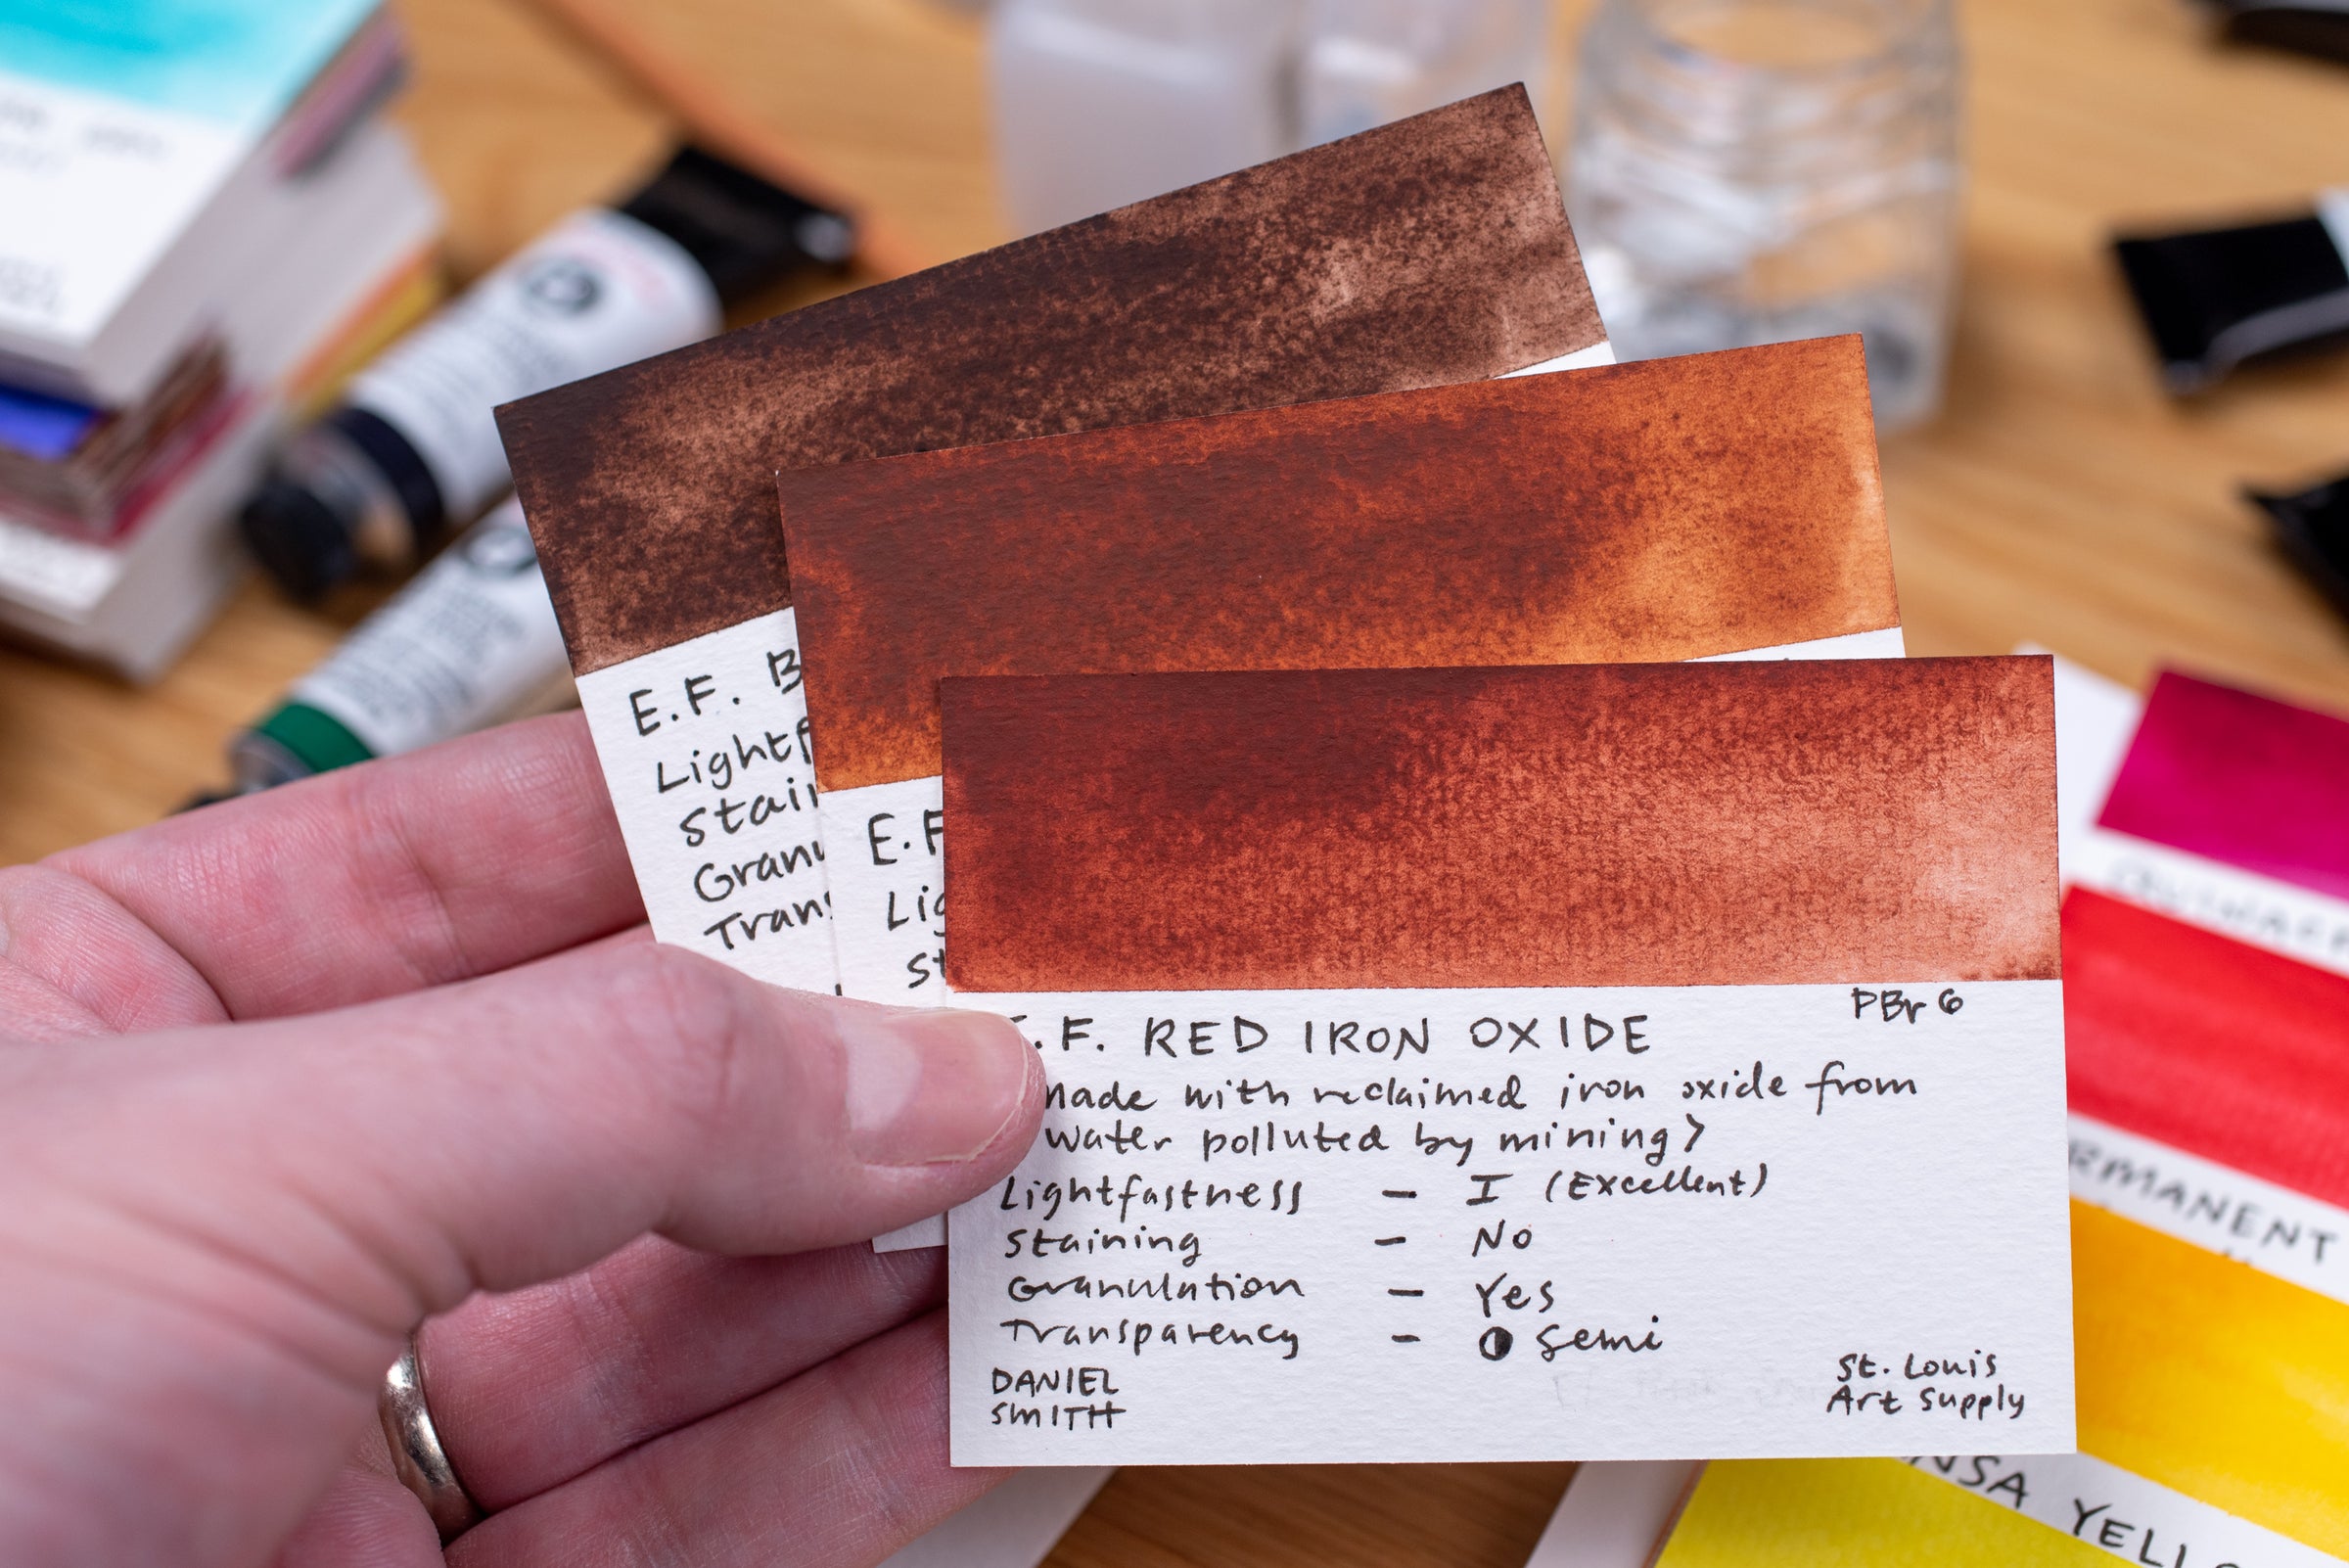 E.F. B
Lightf
Stai
Granu
Trans
E.F
Lig
St
PBr 6
.F. RED IRON OXIDE
made with reclaimed iron oxide from
water polluted by mining>
Lightfastness – I (Excellent)
Staining – No
Granulation – Yes
Transparency – ◑ Semi
DANIEL
SMITH
St. Louis
Art Supply
QUINACR
RMANENT
NSA YELLO